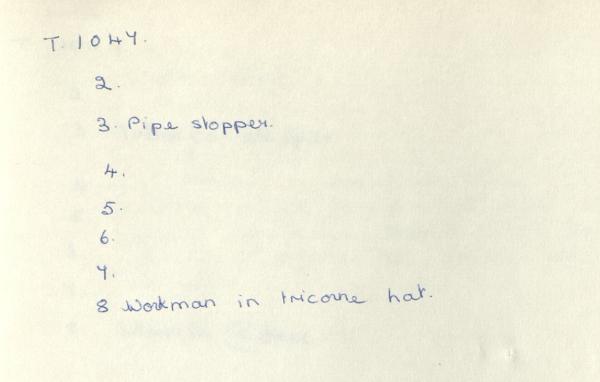 T. 1047.
2.
3. Pipe stopper.
4.
5.
6.
7.
8 Workman in tricorne hat.